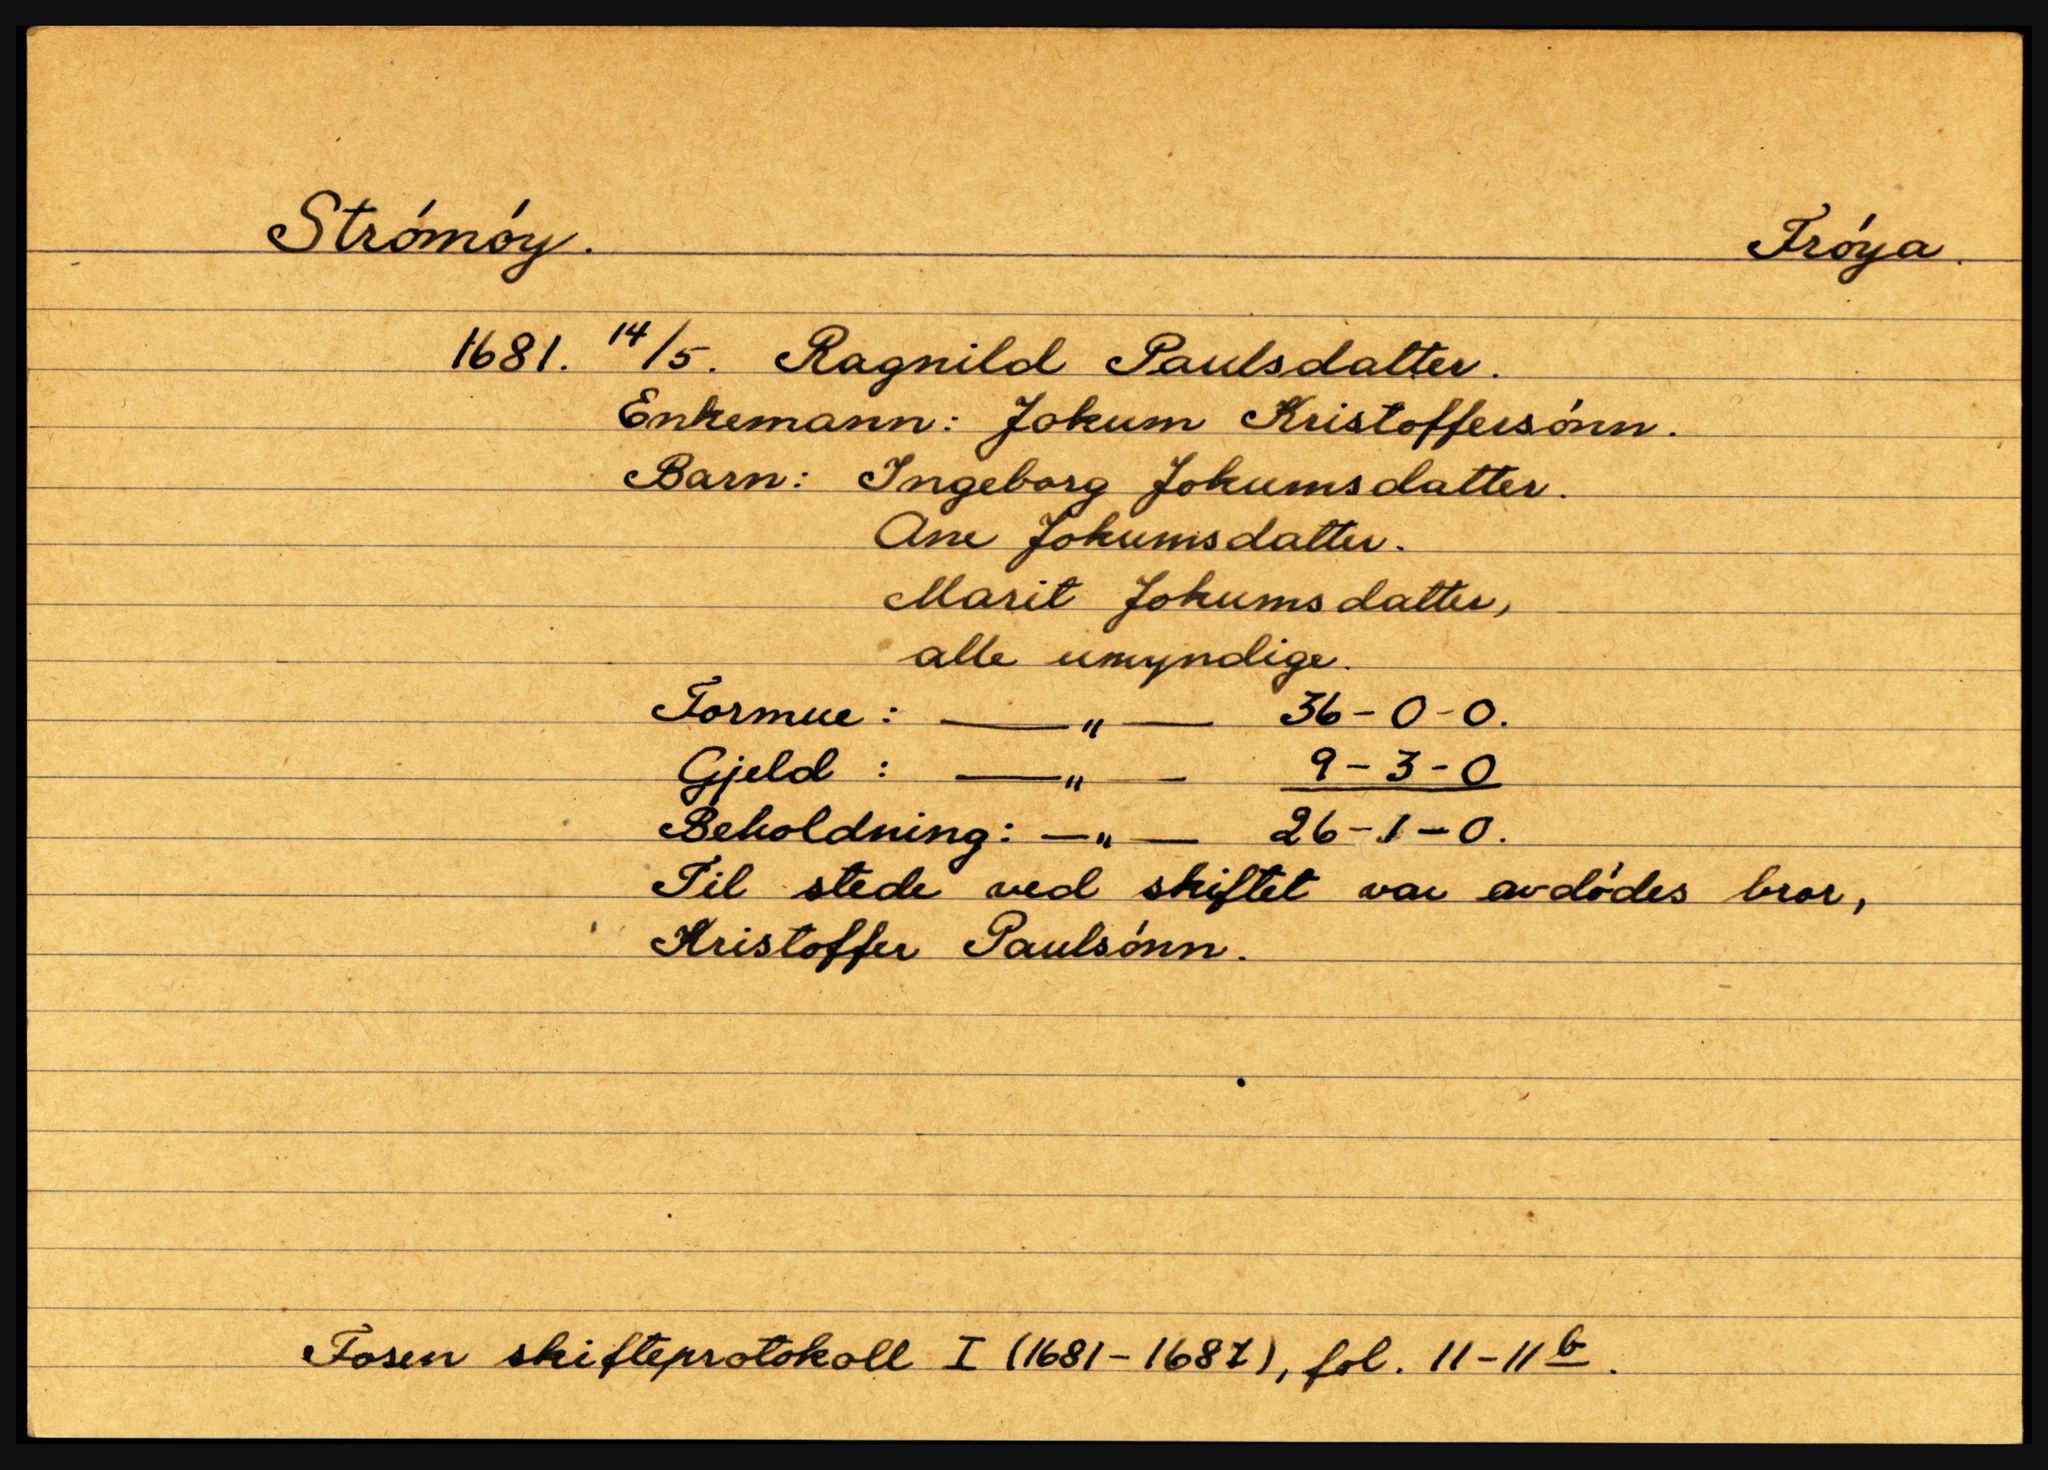 Strómóy. Fróya.
1681. 14/5. Ragnild Paulsdatter.
Enkemann: Jokum Kristoffersónn.
Barn: Ingeborg Jokumsdatter.
Ane Jokumsdatter.
Marit Jokumsdatter,
alle umyndige.
Formue: —„— 36-0-0.
Gjeld: —„— 9-3-0
Beholdning: —„— 26-1-0.
Til stede ved skiftet var avdódes bror,
Kristoffer Paulsónn.
Fosen skifteprotokoll I (1681-1687), fol. 11-11b.